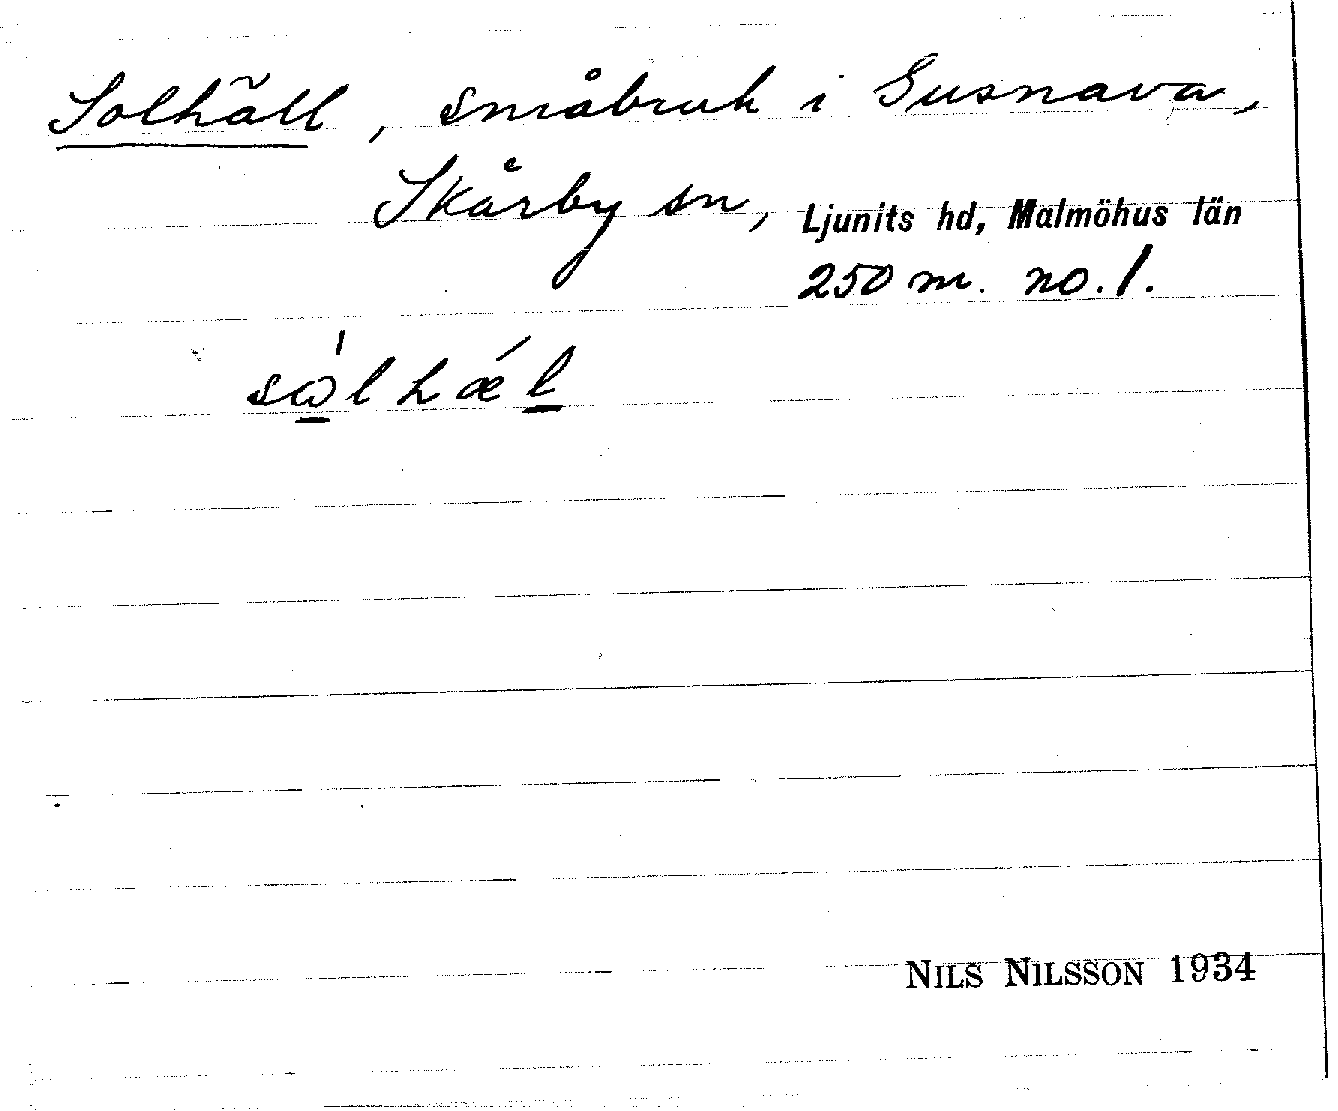 Solhäll, småbruk i Gusnava,
Skårby sn, Ljunits hd, Malmöhus län
250 m. no. 1.
sὼ̲lhǽl̲
NILS NILSSON 1934